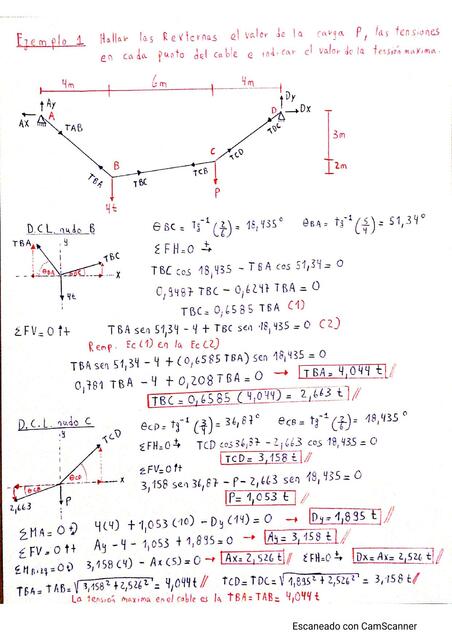 Ejemplo 1 Hallar las Rexternas el valor de la carga P, las tensiones
en cada punto del cable e indicar el valor de la tensión maxima.
4m 6m 4m
Ay Dy
Ax A D Dx
TAB TDC
3m
B C
TCD
TBA TBC TCB
2m
4t P
D.C.L. nudo B θBC = tg⁻¹(2/6) = 18,435° θBA = tg⁻¹(5/4) = 51,34°
y
TBA TBC ΣFH=0 →+
θBA θBC x TBC cos 18,435 - TBA cos 51,34 = 0
0,9487 TBC - 0,6247 TBA = 0
4t TBC = 0,6585 TBA (1)
ΣFV=0 ↑+ TBA sen 51,34 - 4 + TBC sen 18,435 = 0 (2)
Remp. Ec(1) en la Ec(2)
TBA sen 51,34 - 4 + (0,6585 TBA) sen 18,435 = 0
0,781 TBA - 4 + 0,208 TBA = 0 → TBA = 4,044 t //
TBC = 0,6585 (4,044) = 2,663 t //
D.C.L. nudo C θCD = tg⁻¹(3/4) = 36,87° θCB = tg⁻¹(2/6) = 18,435°
y
TCD ΣFH=0 →+ TCD cos 36,87 - 2,663 cos 18,435 = 0
TCD = 3,158 t //
θCD x ΣFV=0 ↑+
θCB 3,158 sen 36,87 - P - 2,663 sen 18,435 = 0
2,663 P P = 1,053 t //
ΣMA = 0 4(4) + 1,053 (10) - Dy (14) = 0 → Dy = 1,895 t //
ΣFV = 0 ↑+ Ay - 4 - 1,053 + 1,895 = 0 → Ay = 3,158 t //
3,158 (4) - Ax (5) = 0 → Ax = 2,526 t // ΣFH=0 Dx = Ax = 2,526 t //
TBA = TAB = √3,158² + 2,526² = 4,044 t // TCD = TDC = √1,895² + 2,526² = 3,158 t //
La tensión maxima en el cable es la TBA = TAB = 4,044 t
Escaneado con CamScanner